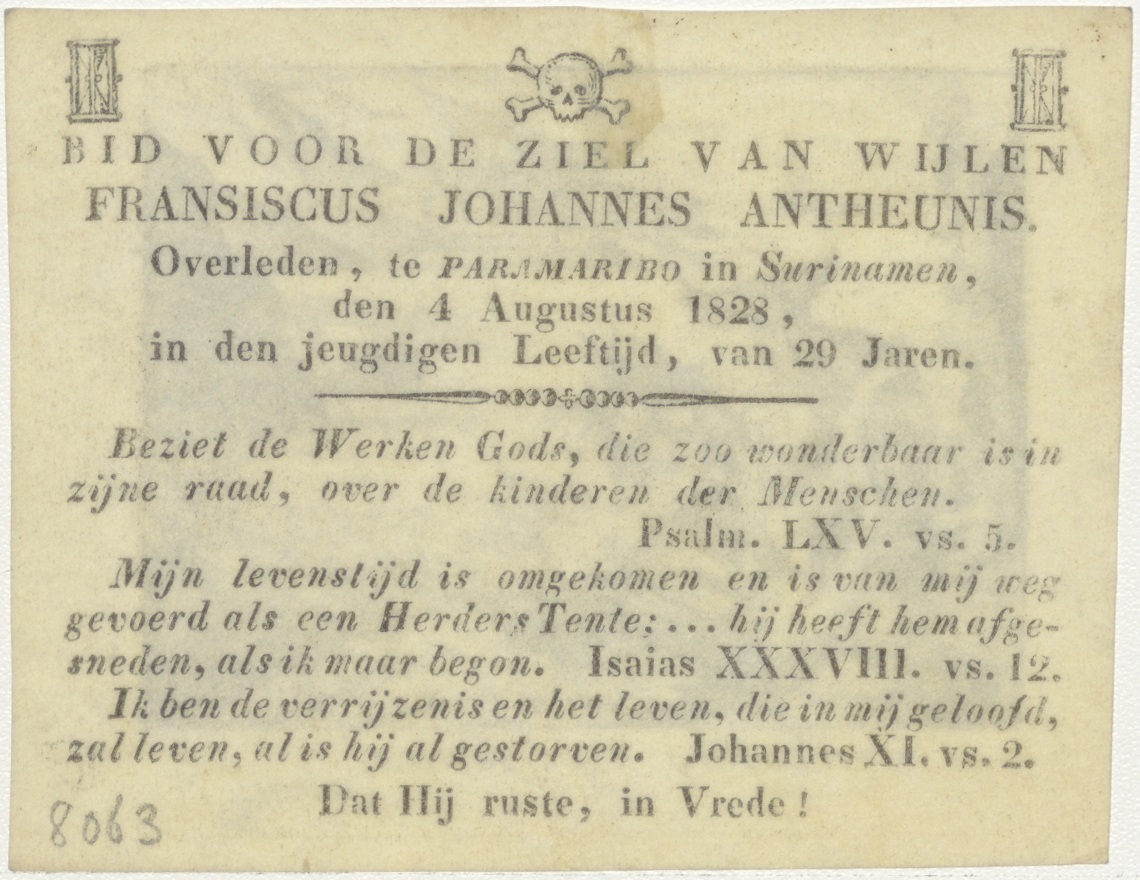 BID VOOR DE ZIEL VAN WIJLEN
FRANSISCUS JOHANNES ANTHEUNIS.
Overleden, te PARAMARIBO in Surinamen,
den 4 Augustus 1828,
in den jeugdigen Leeftijd, van 29 Jaren.
Beziet de Werken Gods, die zoo wonderbaar is in
zijne raad, over de kinderen der Menschen.
Psalm. LXV. vs. 5.
Mijn levenstijd is omgekomen en is van mij weg
gevoerd als een Herders Tente; ... hij heeft hem afge-
sneden, als ik maar begon. Isaias XXXVIII. vs. 12.
Ik ben de verrijzenis en het leven, die in mij geloofd,
zal leven, al is hij al gestorven. Johannes XI. vs. 2.
Dat Hij ruste, in Vrede!
8063